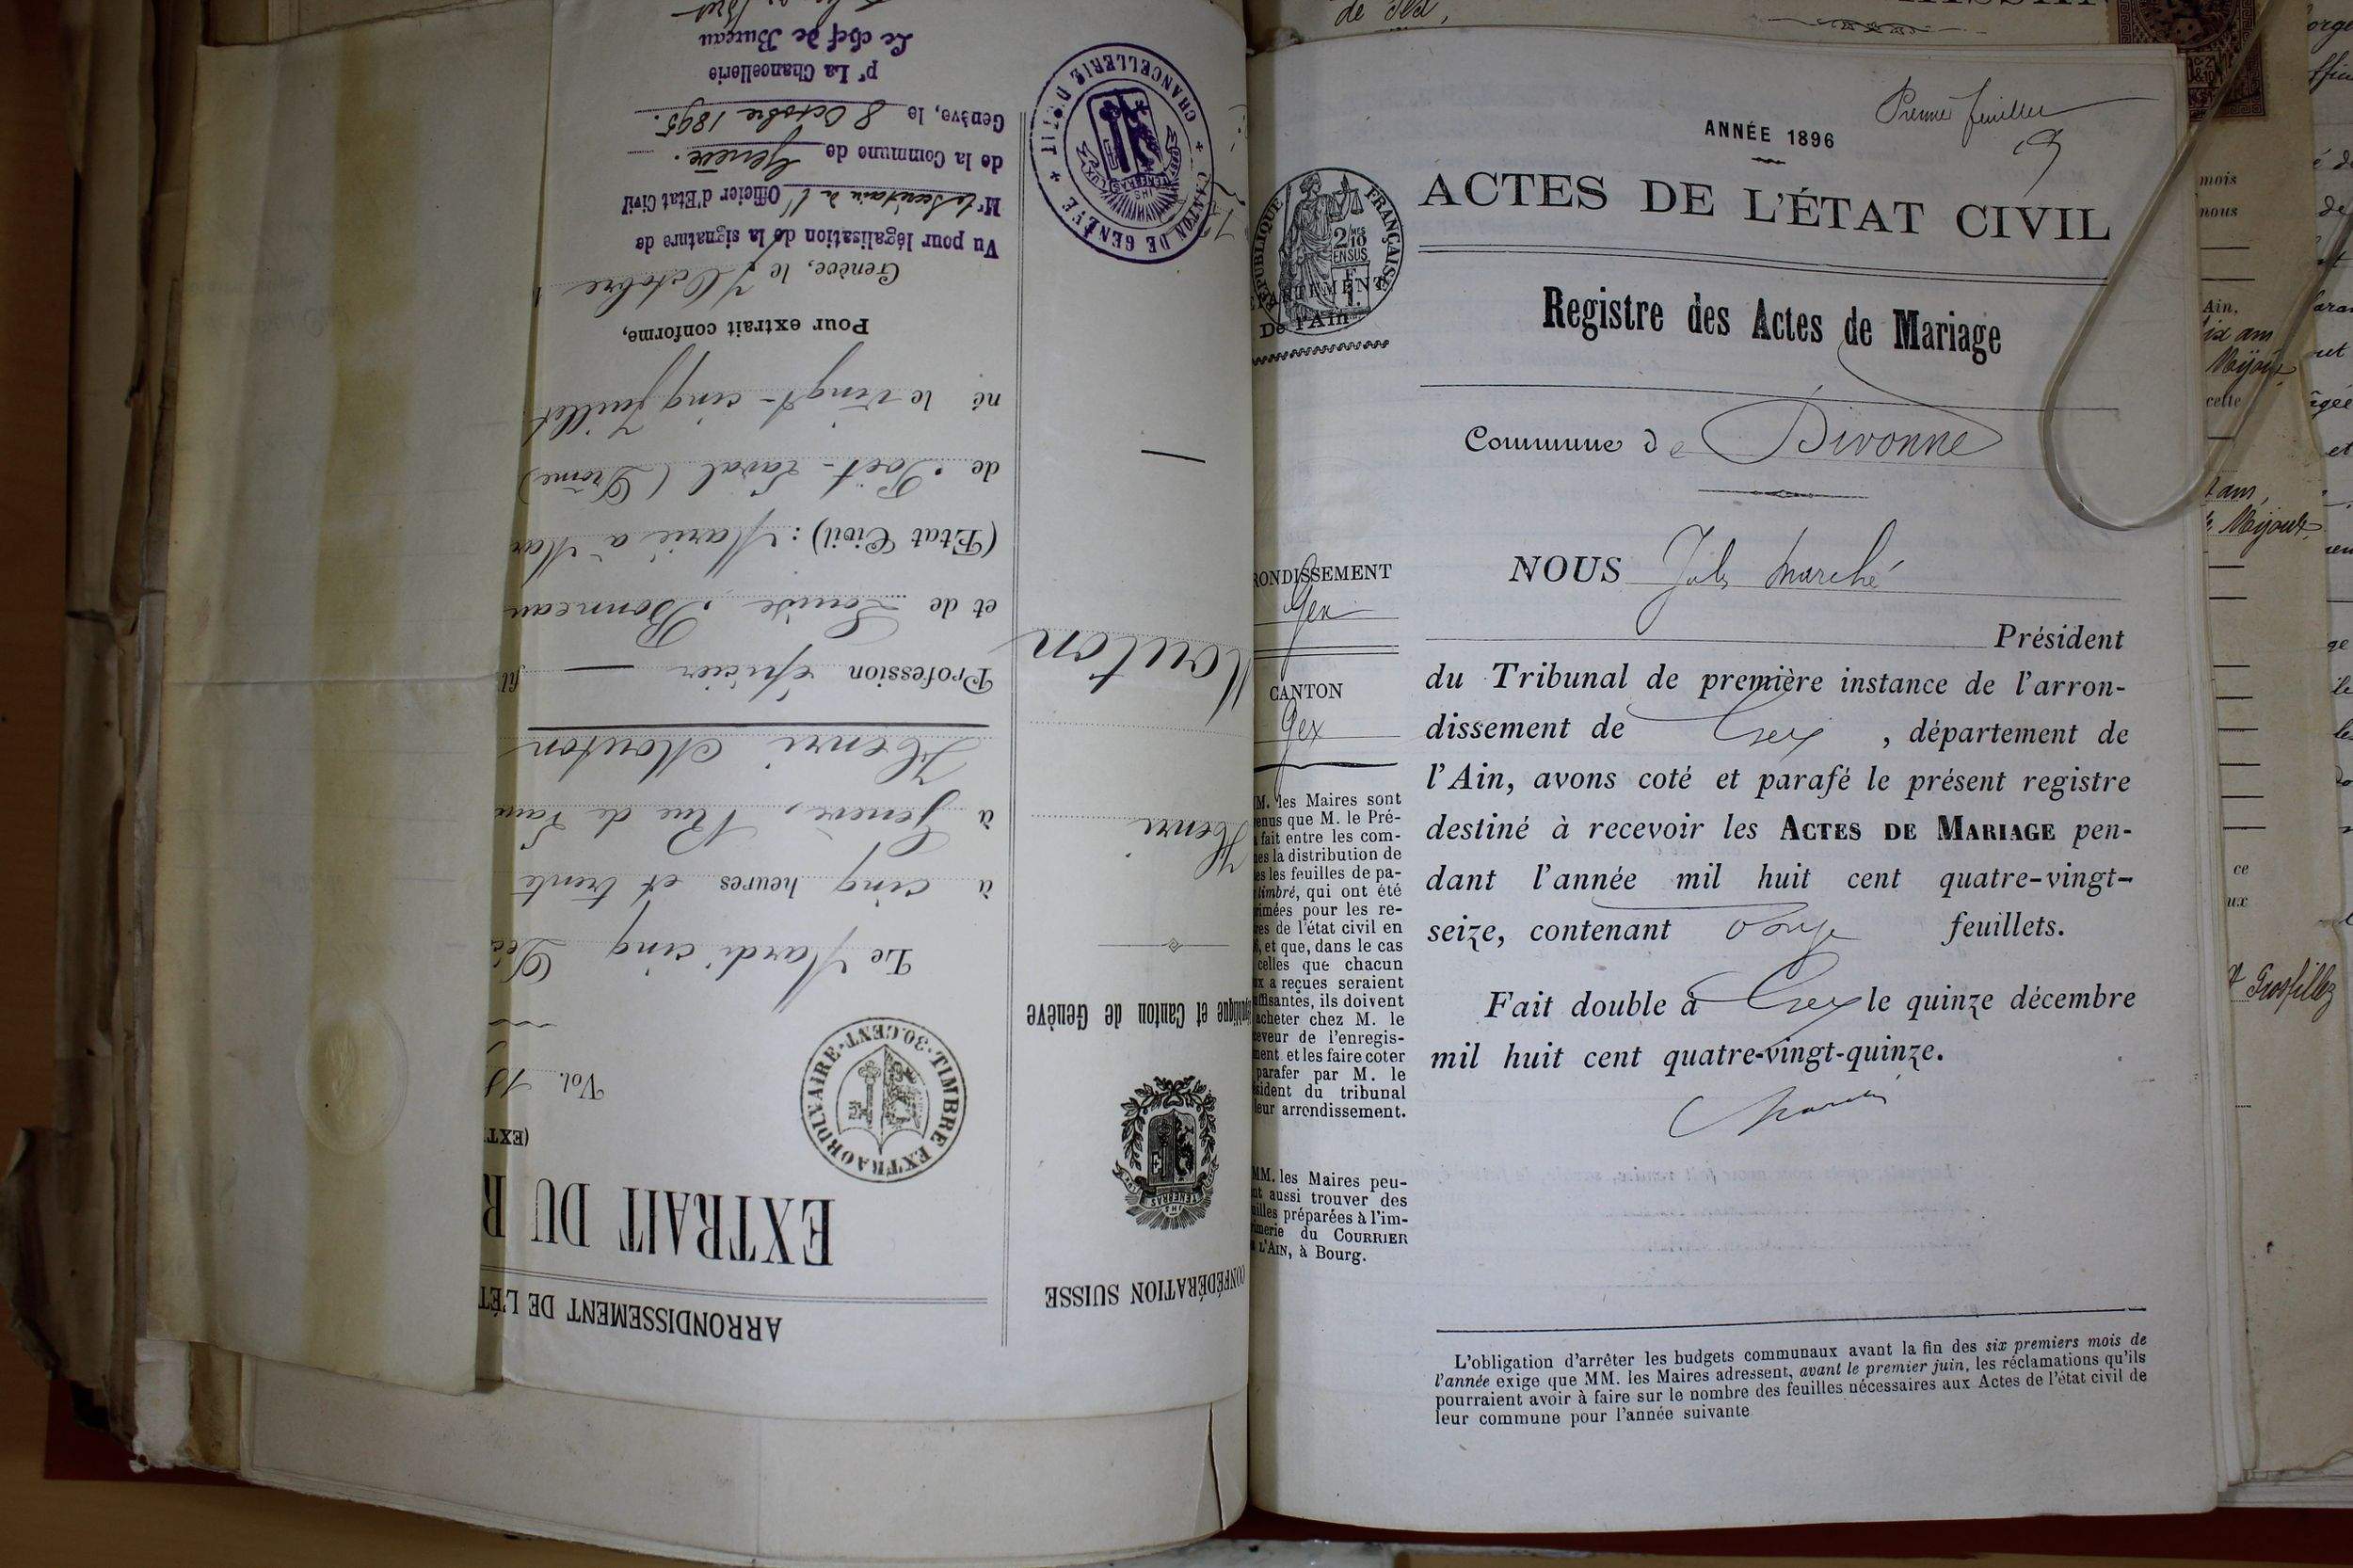 CONFÉDÉRATION SUISSE
République et Canton de Genève
Henri
Mouton
ARRONDISSEMENT DE L'ÉT
EXTRAIT DU R
(EXT
TIMBRE EXTRAORDINAIRE 30 CENT.
Vol.
Le Mardi cinq Déc
à cinq heures et trente
à Genève, Rue de
Henri Mouton
Profession épicier fil
et de Louise Bonneau
(Etat Civil): Marié à Mar
de Poët-Laval (Drôme)
né le vingt-cinq Juillet
Pour extrait conforme,
Genève, le 7 Octobre 1
Vu pour légalisation de la signature de
Mr le Secrétaire de l' Officier d'Etat Civil
de la Commune de Genève.
Genève, le 8 Octobre 1895.
pr La Chancellerie
Le chef de Bureau
CHANCELLERIE D'ÉTAT
CANTON DE GENÈVE
POST TENEBRAS LUX
IHS
Premier feuillet
ANNÉE 1896
ACTES DE L'ÉTAT CIVIL
Registre des Actes de Mariage
Commune de Divonne
NOUS Jules Marché
Président
du Tribunal de première instance de l'arron-
dissement de Gex, département de
l'Ain, avons coté et parafé le présent registre
destiné à recevoir les ACTES DE MARIAGE pen-
dant l'année mil huit cent quatre-vingt-
seize, contenant onze feuillets.
Fait double à Gex le quinze décembre
mil huit cent quatre-vingt-quinze.
RÉPUBLIQUE FRANÇAISE
2/10 MES
EN SUS
De l'Ain
RONDISSEMENT
Gex
CANTON
Gex
M. les Maires sont
enus que M. le Pré-
fait entre les com-
es la distribution de
es les feuilles de pa-
timbré, qui ont été
rimées pour les re-
res de l'état civil en
, et que, dans le cas
celles que chacun
ux a reçues seraient
uffisantes, ils doivent
acheter chez M. le
eveur de l'enregis-
ment et les faire coter
parafer par M. le
sident du tribunal
leur arrondissement.
MM. les Maires peu-
nt aussi trouver des
uilles préparées à l'im-
rimerie du COURRIER
L'AIN, à Bourg.
L'obligation d'arrêter les budgets communaux avant la fin des six premiers mois de
l'année exige que MM. les Maires adressent, avant le premier juin, les réclamations qu'ils
pourraient avoir à faire sur le nombre des feuilles nécessaires aux Actes de l'état civil de
leur commune pour l'année suivante
mois
nous
Ain,
Mijoux
cette
ans,
Mijoux
ce
ux
Grosfillez